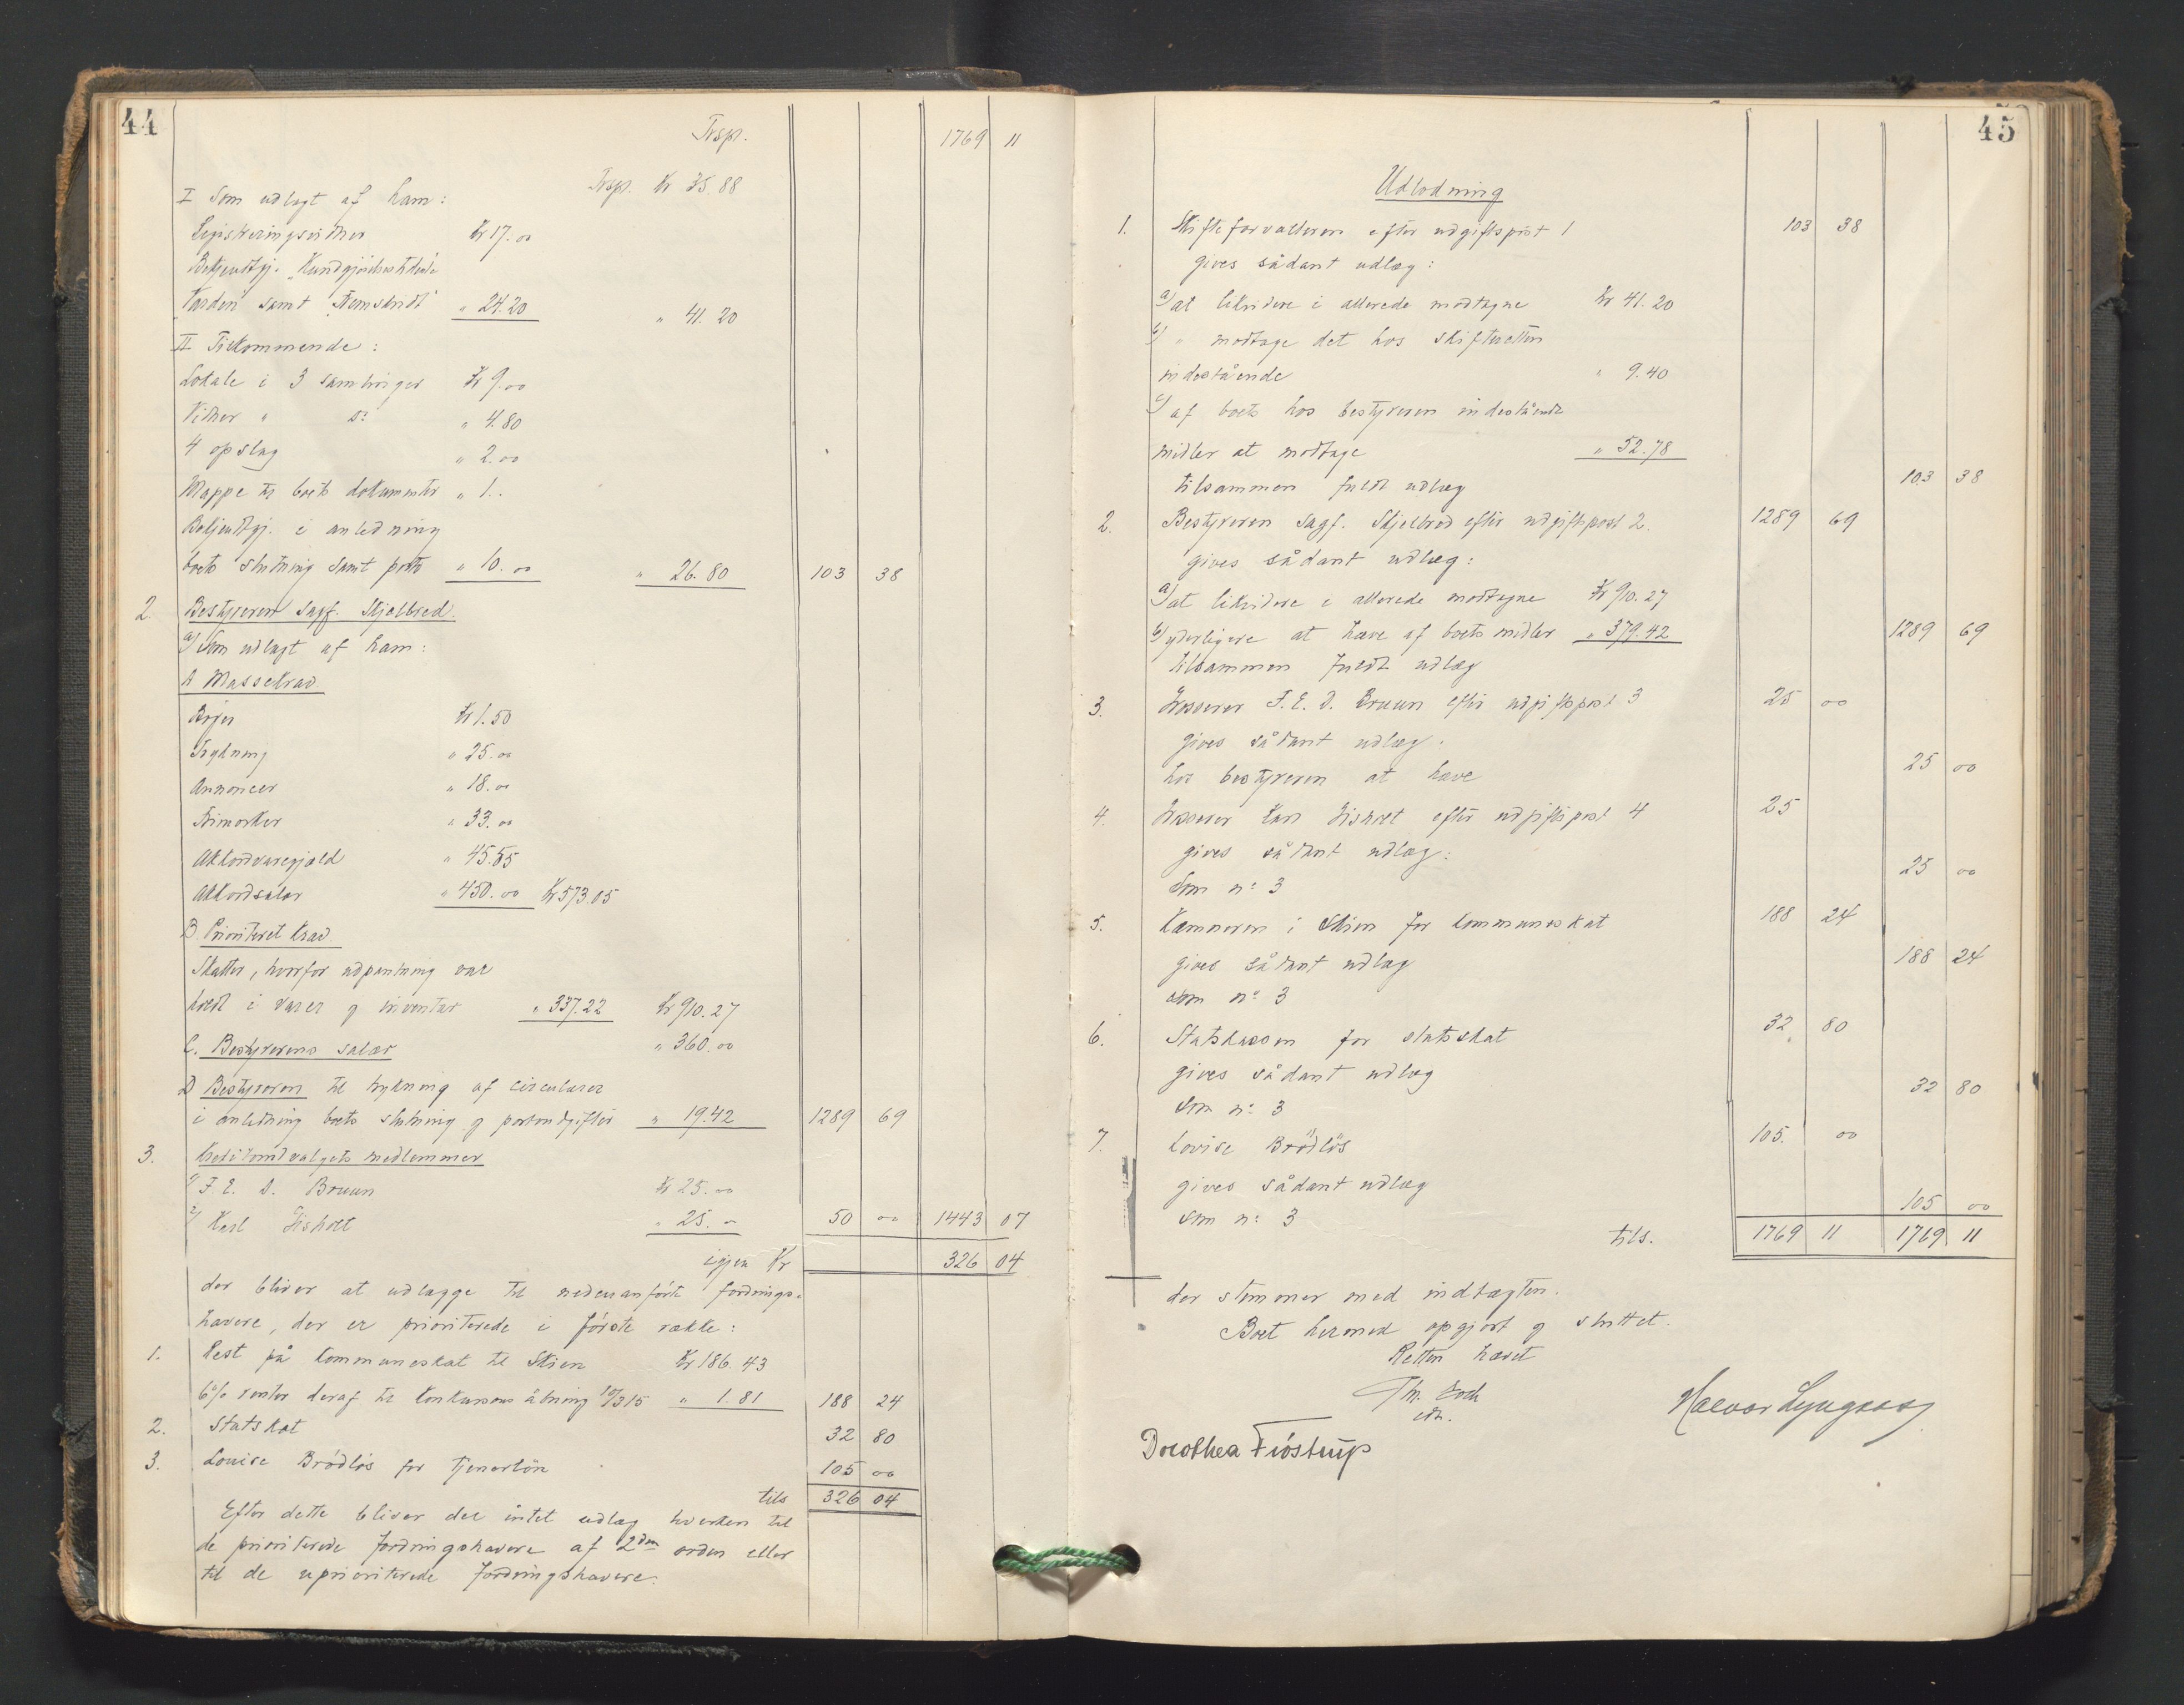 44
Trsp. 1769 11
Trsp. Kr 35.88
I Som udlagt af ham:
Registreringsvidner Kr 17.00
Bekjentgj. "Kundgjørelsestidende"
"Varden" samt "Fremskridt" " 24.20 " 41.20
II Tilkommende:
Lokale i 3 samlinger Kr 9.00
Vidner " do " 4.80
4 opslag " 2.00
Mappe til boets dokumenter " 1..
Bekjentgj. i anledning
boets slutning samt porto " 10.00 " 26.80 103 38
2. Bestyreren sagf. Skjelbred.
a) Som udlagt af ham:
A Massekrav
Bøger Kr 1.50
Trykning " 25.00
Annoncer " 18.00
Frimerker " 33.00
Akkordvaregjæld " 45.55
Akkordsalær " 450.00 Kr 573.05
B. Prioriteret krav
Skatter, hvorfor udpantning var
holdt i varer og inventar " 337.22 Kr 910.27
C. Bestyrerens salær " 360.00
D Bestyreren til trykning af circulærer
i anledning boets slutning og portoudgifter " 19.42 1289 69
3. Kreditorudvalgets medlemmer
1) F. E. D. Bruun Kr 25.00
2) Karl Gisholt " 25. 00 50 00 1443 07
igjen Kr 326 04
der bliver at udlægge til nedenanførte fordrings-
havere, der er prioriterede i første række:
1. Rest på kommuneskat til Skien Kr 186.43
6% renter deraf til konkursens åbning 10/3 15 " 1.81 188 24
2. Statskat 32 80
3. Lovise Brødløs for tjenerløn 105 00
tils 326 04
Efter dette bliver der intet udlæg hverken til
de prioriterede fordringshavere af 2den orden eller
til de uprioriterede fordringshavere.
45
Udlodning
1. Skifteforvalteren efter udgiftspost 1 103 38
gives sådant udlæg:
a) at likvidere i allerede modtagne Kr 41.20
b) " modtage det hos skifteretten
indestående " 9.40
c) af boets hos bestyreren indestående
midler at modtage " 52.78
tilsammen fuldt udlæg 103 38
2. Bestyreren sagf. Skjelbred efter udgiftspost 2. 1289 69
gives sådant udlæg:
a) at likvidere i allerede modtagne Kr 910.27
b) yderligere at hæve af boets midler " 379.42 1289 69
tilsammen fuldt udlæg
3. Grosserer F. E. D. Bruun efter udgiftspost 3 25 00
gives sådant udlæg.
hos bestyreren at hæve 25 00
4. Grosserer Karl Gisholt efter udgiftspost 4 25
gives sådant udlæg:
Som no 3 25 00
5. Kæmneren i Skien for kommuneskat 188 24
gives sådant udlæg 188 24
som no 3
6. Statskassen for statsskat 32 80
gives sådant udlæg
Som no 3 32 80
7. Lovise Brødløs 105. 00
gives sådant udlæg
som no 3 105 00
tils. 1769 11 1769 11
der stemmer med indtægten.
Boet hermed opgjort og sluttet.
Retten hævet
Th. Boch
cst.
Halvor Lyngaas
Dorothea Frøstrup